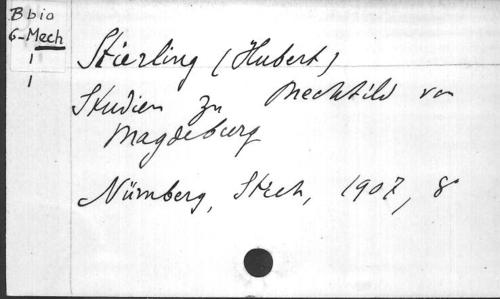 B bio
6-Mech
1
1
Stierling (Hubert)
Studien zu Mechtild von
Magdeburg
Nürnberg, Stich, 1907, 8°